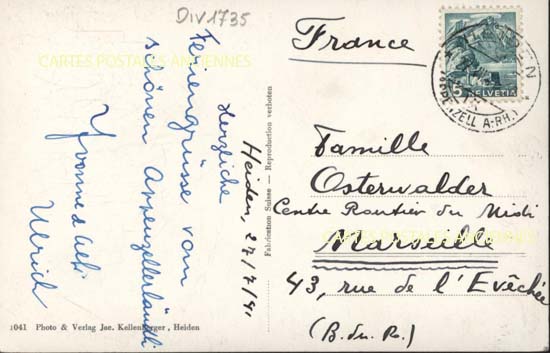 DIV1735
CARTES POSTALES ANCIENNES
Heiden, 27/7/41
Herzliche
Feriengrüsse vom
schönen Appenzellerländli
Yvonne &
Ulrich
1041 Photo & Verlag Jae. Kellenberger, Heiden
Fabrication Suisse — Reproduction verboten
France
HEIDEN
APPENZELL A-RH.
5 HELVETIA
Famille
Osterwalder
Centre Routier du Midi
CARTES POSTALES ANCIENNES
Marseille
43, rue de l'Evêchée
(B. du R.)